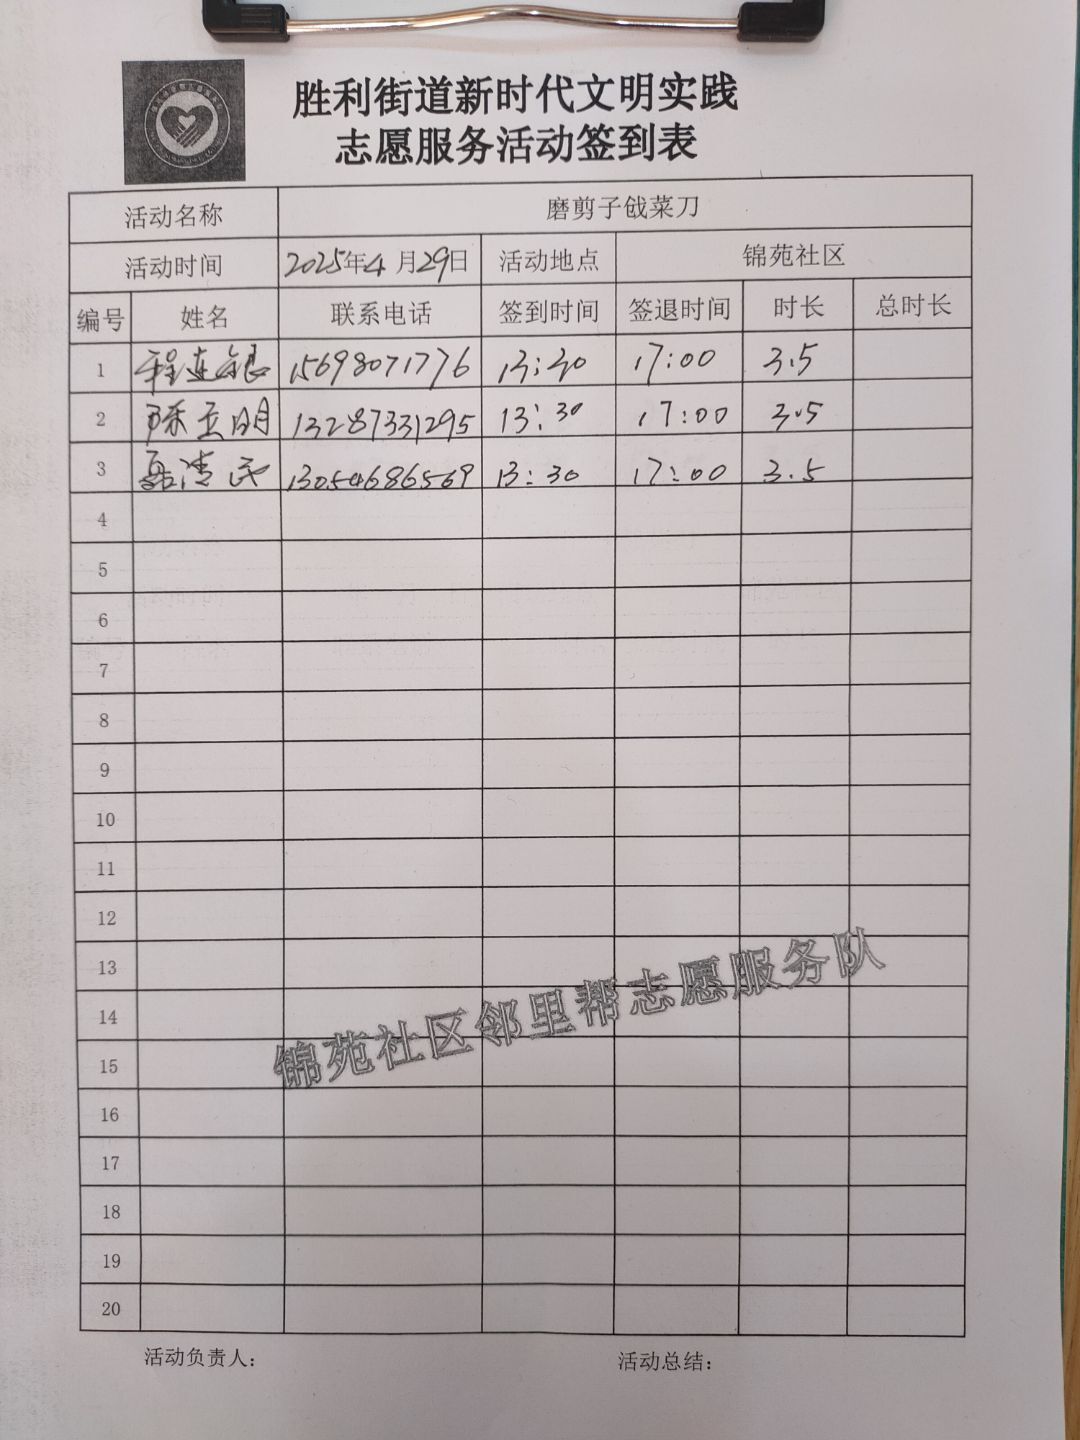 胜利街道新时代文明实践
志愿服务活动签到表
活动名称 磨剪子戗菜刀
活动时间 2025年4月29日 活动地点 锦苑社区
编号 姓名 联系电话 签到时间 签退时间 时长 总时长
1 程连银 15698071776 13:30 17:00 3.5
2 陈立明 13287331295 13:30 17:00 3.5
3 清民 13054686569 13:30 17:00 3.5
4
5
6
7
8
9
10
11
12
13
14
15
16
17
18
19
20
锦苑社区邻里帮志愿服务队
活动负责人： 活动总结：